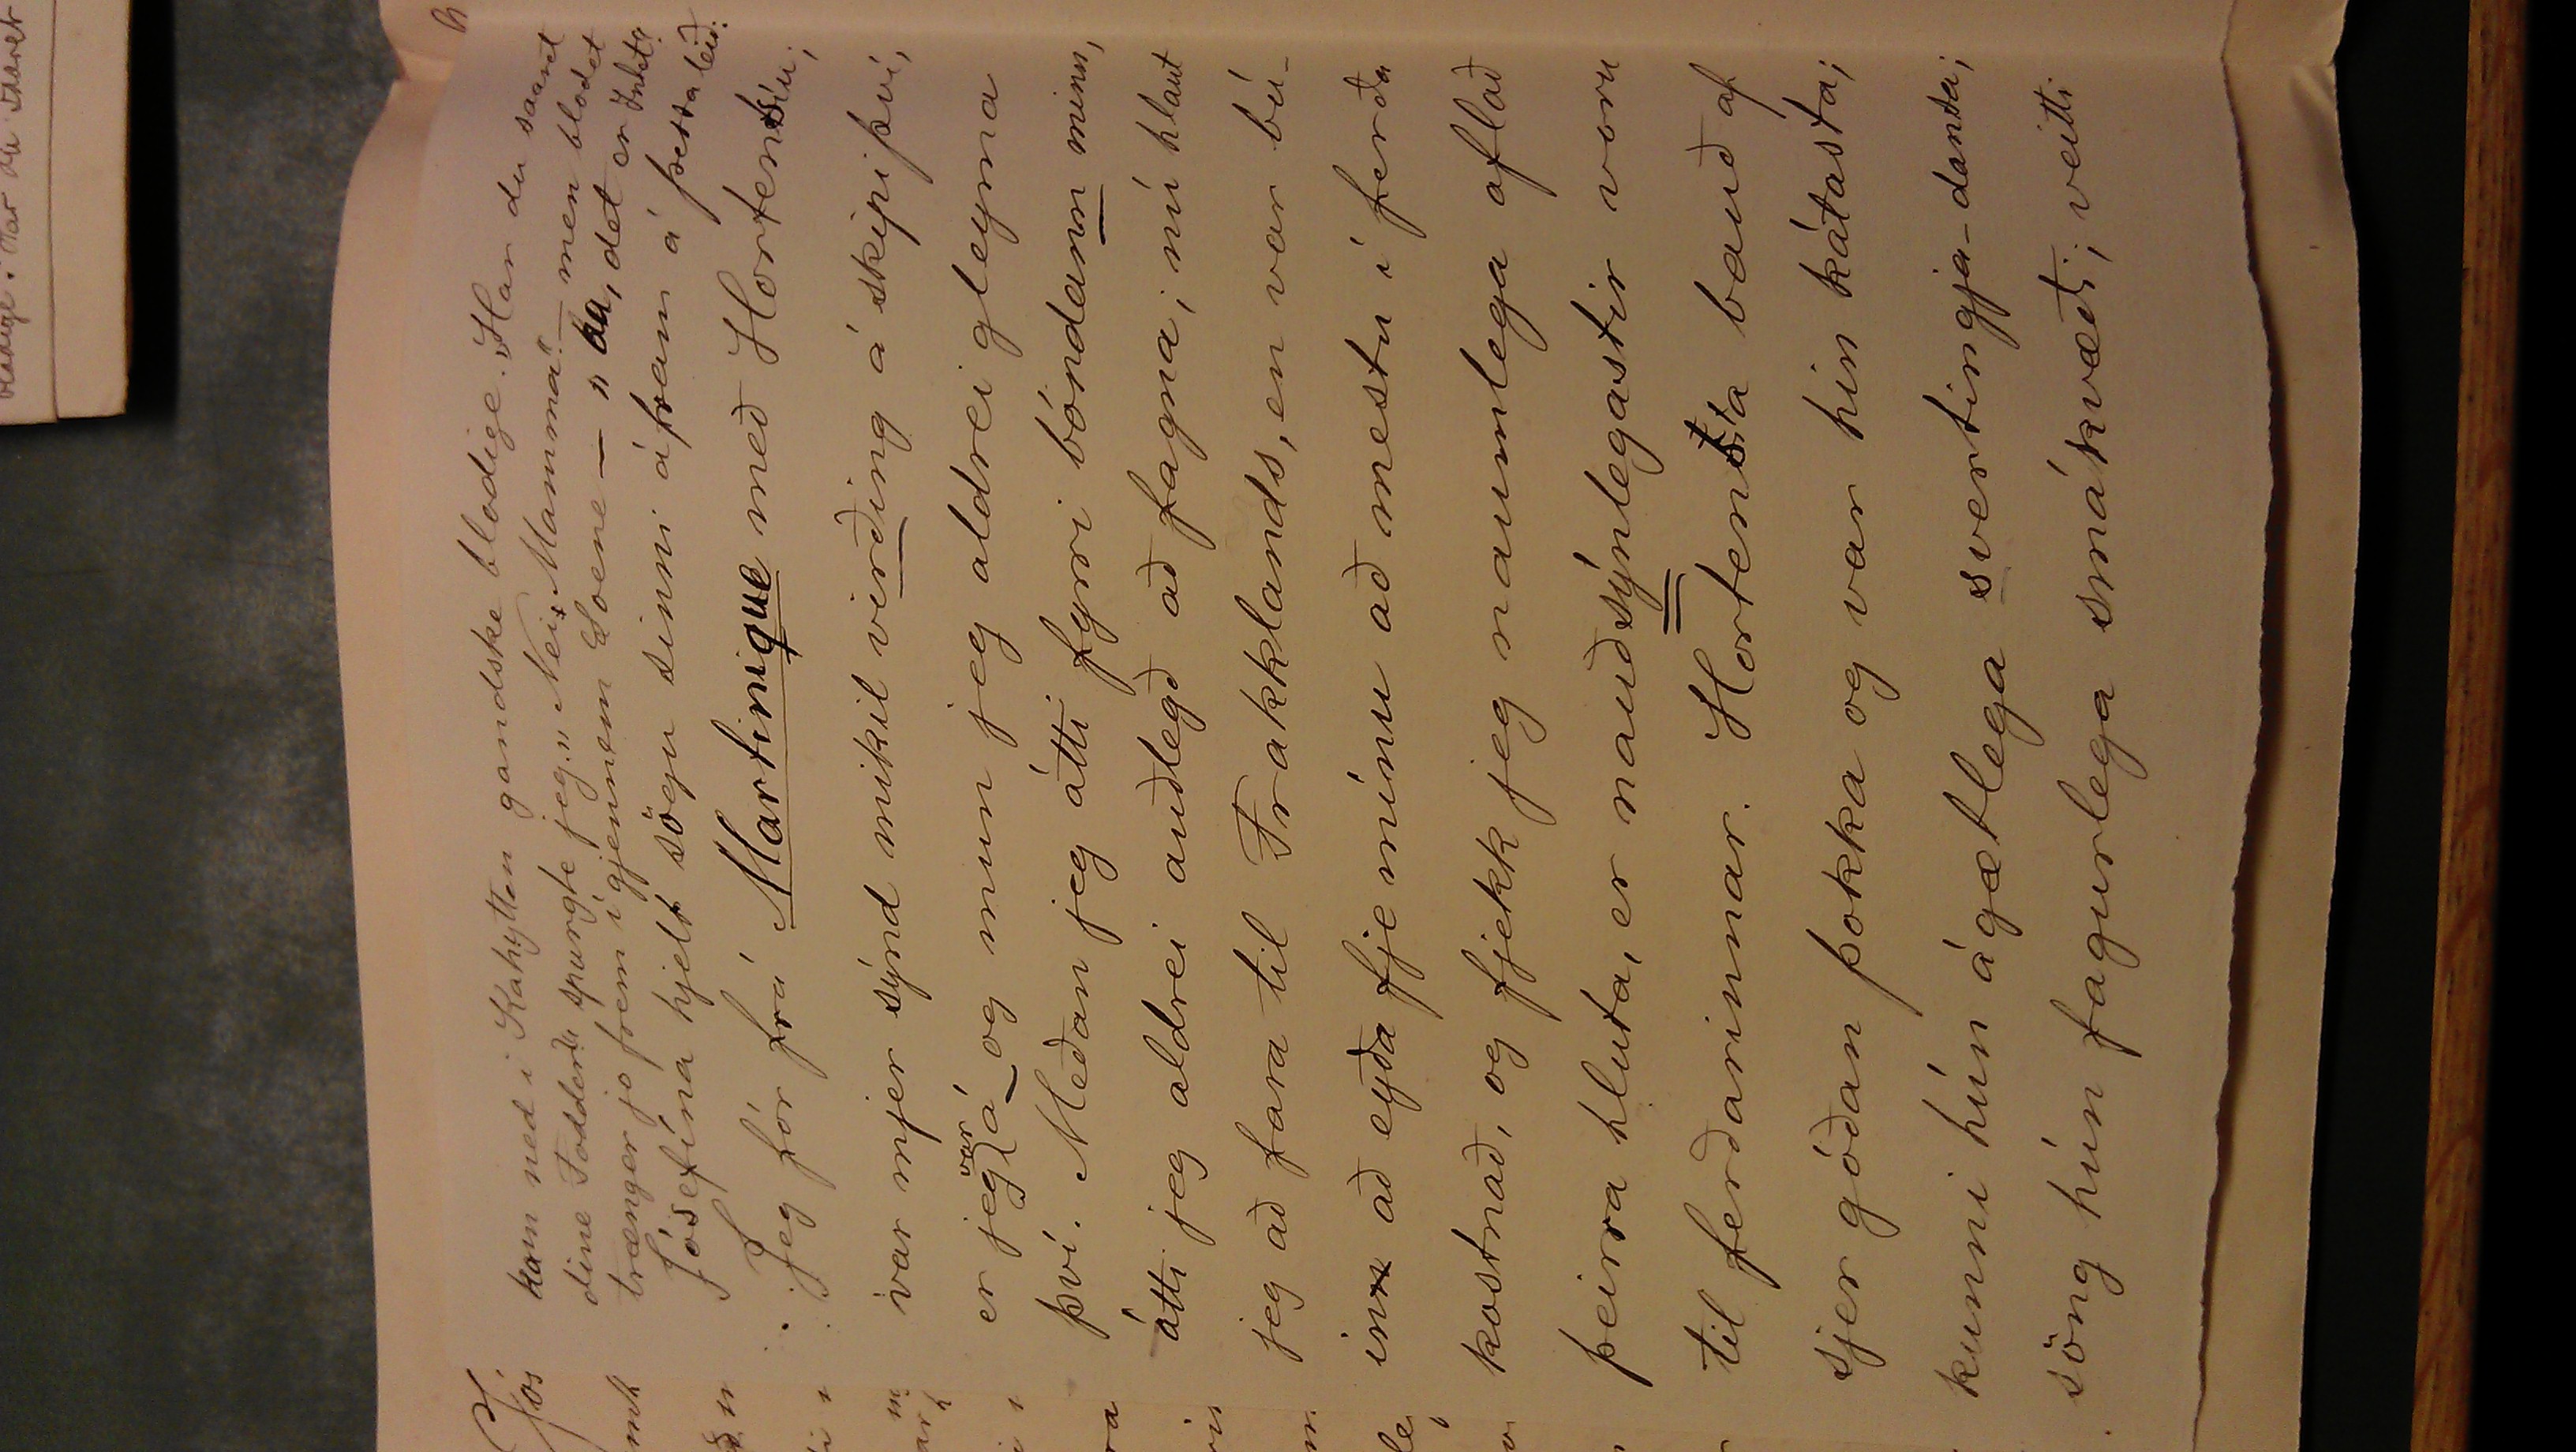 kom ned i Kahytten gandske blodige. "Har du saaret
dine Fødder" spurgte jeg. "Nei, Mamma" — men blodet
trænger jo frem igjennem Soene — "aa, det er Intet".
Jósefína hjelt sögu sinni áfram á þessa leið:
Jeg fór frá Martinique með Hortensíu;
var mjer sýnd mikil virðing á skipi því,
er jeg var á og mun jeg aldrei gleyma
því. Meðan jeg átti fyrri bóndann minn,
átti jeg aldrei auðlegð að fagna; nú hlaut
jeg að fara til Frakklands, en var bú-
in að eyða fje mínu að mestu í ferða
kostnað, og fjekk jeg naumlega aflað
þeirra hluta, er nauðsýnlegastir voru
til ferðarinnar. Hortensta bauð af
sjer góðan þokka og var hin kátasta;
kunni hún ágætlega svertingja-dansa;
söng hún fagurlega smákvæði; veitti